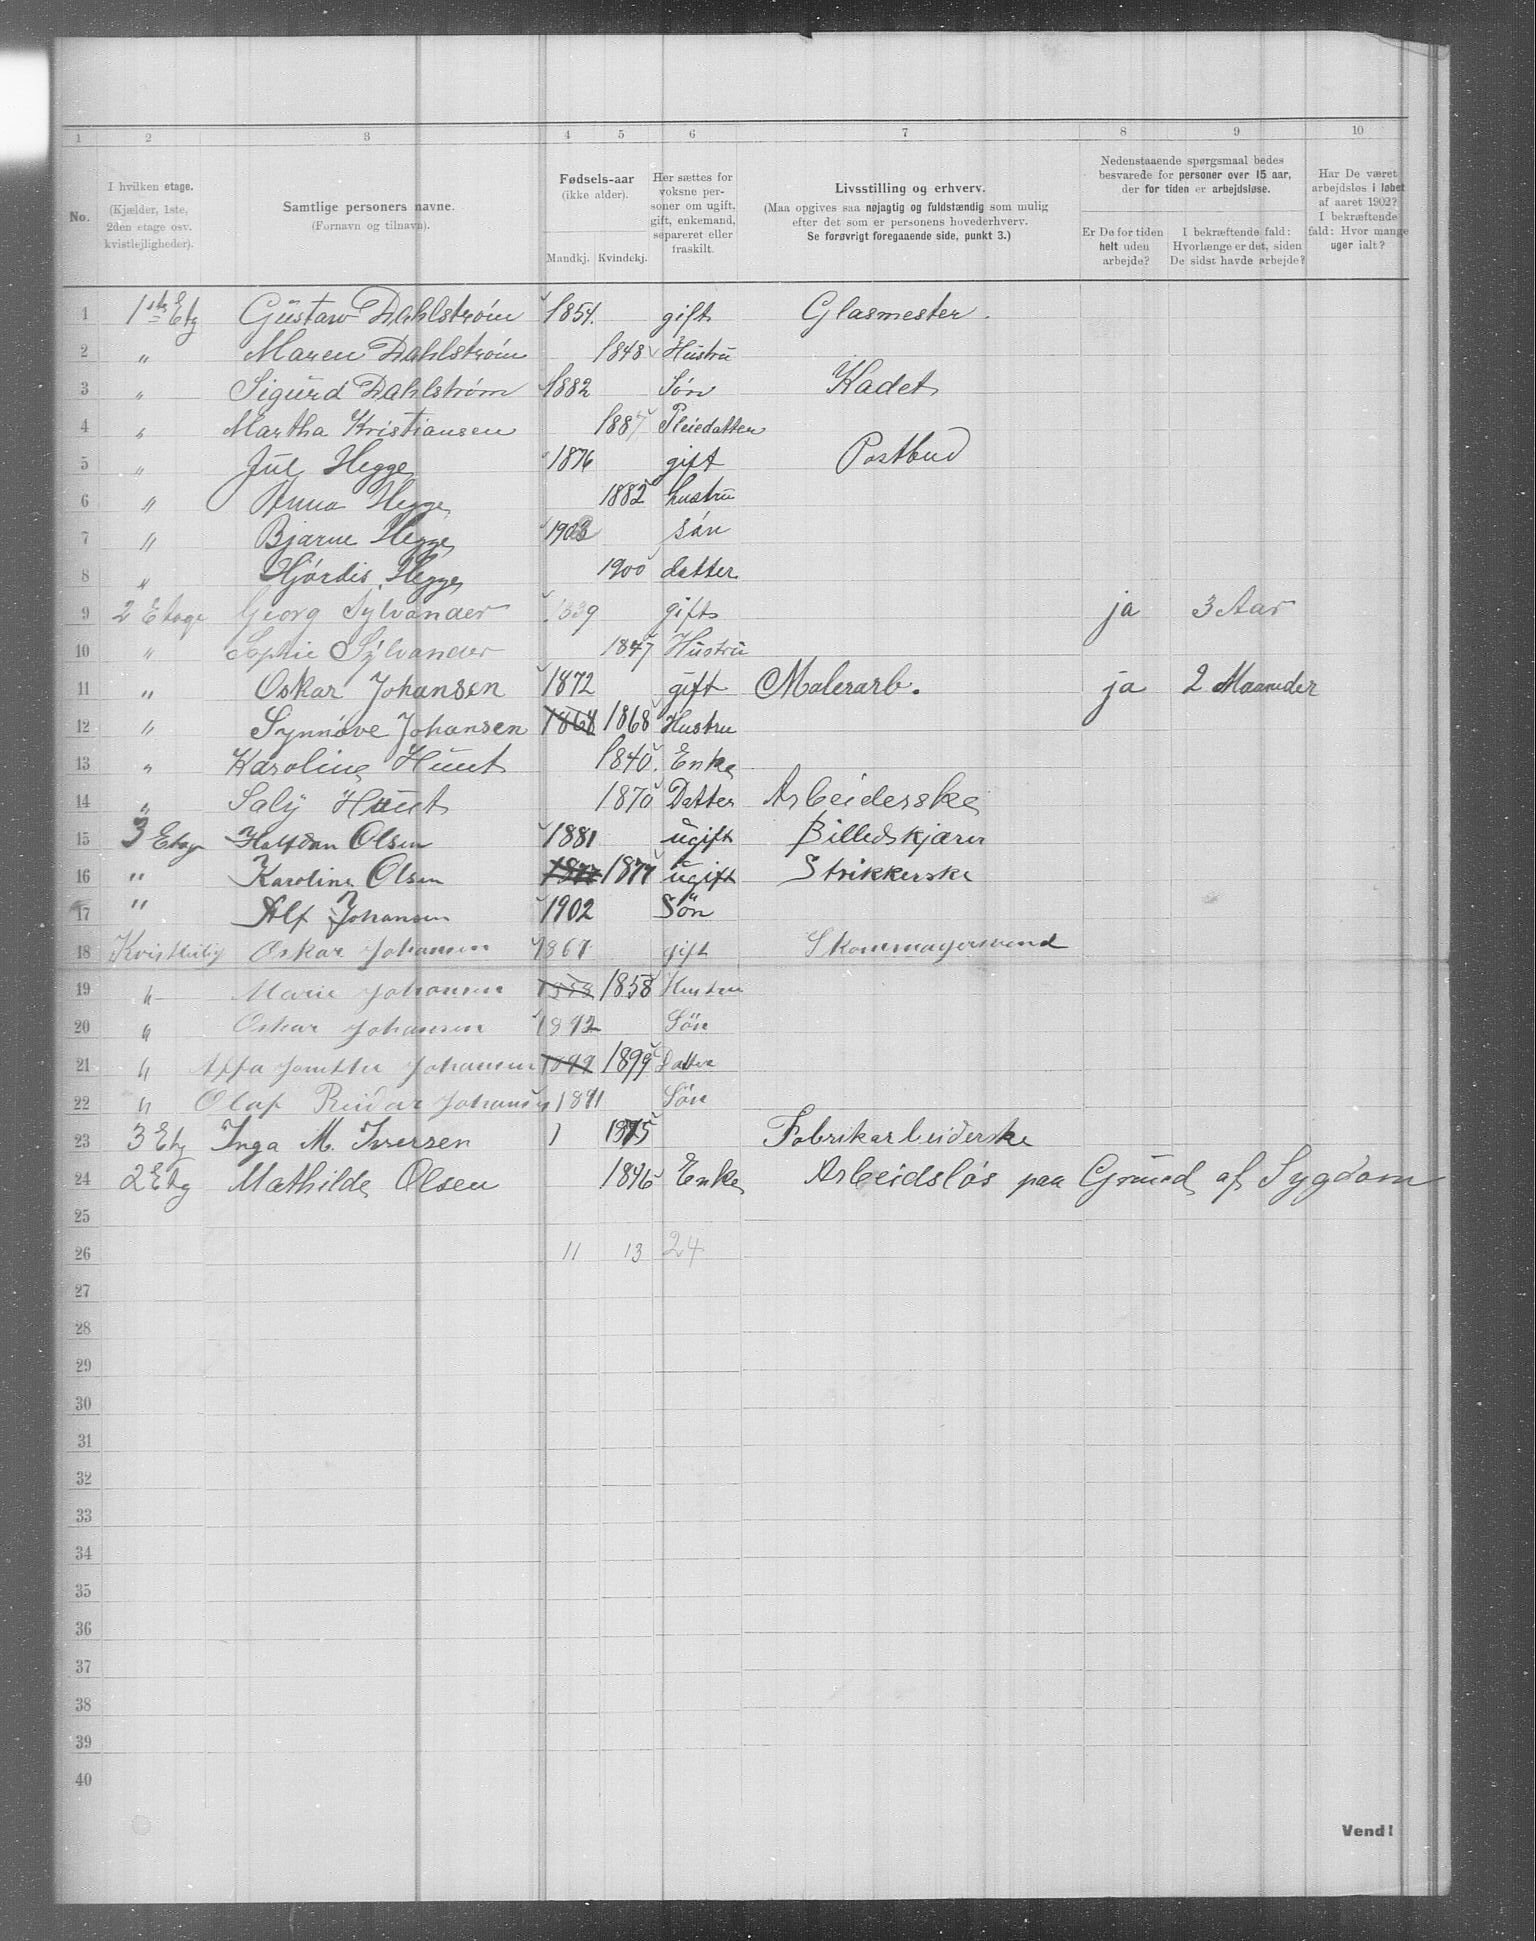 1 2 3 4 5 6 7 8 9 10
No.
I hvilken etage.
(Kjælder, 1ste,
2den etage osv.
kvistlejligheder).
Samtlige personers navne.
(Fornavn og tilnavn).
Fødsels-aar
(ikke alder).
Mandkj. Kvindekj.
Her sættes for
voksne per-
soner om ugift,
gift, enkemand,
separeret eller
fraskilt.
Livsstilling og erhverv.
(Maa opgives saa nøjagtig og fuldstændig som mulig
efter det som er personens hovederhverv.
Se forøvrigt foregaaende side, punkt 3.)
Nedenstaaende spørgsmaal bedes
besvarede for personer over 15 aar,
der for tiden er arbejdsløse.
Er De for tiden
helt uden
arbejde?
I bekræftende fald:
Hvorlænge er det, siden
De sidst havde arbejde?
Har De været
arbejdsløs i løbet
af aaret 1902?
I bekræftende
fald: Hvor mange
uger ialt?
1 1ste Etg Gustav Dahlstrøm 1854. gift Glasmester.
2 " Maren Dahlstrøm 1848 Hustru
3 " Sigurd Dahlstrøm 1882 Søn Kadet
4 " Martha Kristiansen 1887 Pleiedatter
5 " Jul Hegge 1876 gift Postbud
6 " Anna Hegge 1882 hustru
7 " Bjarne Hegge 1903 søn
8 " Hjørdis Hegge 1900 datter
9 2 Etage Georg Sylvander 1839 gift ja 3 Aar
10 " Sophie Sylvander 1847 Hustru
11 " Oskar Johansen 1872 gift Malerarb. ja 2 Maaneder
12 " Synnøve Johansen 1868 1868 Hustru
13 " Karoline Huut 1840. Enke
14 " Saly Huut 1870 Datter Arbeiderske
15 3 Etage Halfdan Olsen 1881 ugift Billedskjærer
16 " Karoline Olsen 1877 1877 ugift Strikkerske
17 " Alf Johansen 1902 Søn
18 Kvistleilig Oskar Johansen 1867 gift Skommagersvend
19 " Marie Johansen 1858 1858 Hustru
20 " Oskar Johansen 1892 Søn
21 " Johansen 1899 1899 Datter
22 " Olaf Reidar Johansen 1891 Søn
23 3 Etg Inga M. Iversen 1 1875 Fabrikarbeiderske
24 2 Etg Mathilde Olsen 1846 Enke Arbeidsløs paa Grund af Sygdom
25
26 11 13 24
27
28
29
30
31
32
33
34
35
36
37
38
39
40
Vend!